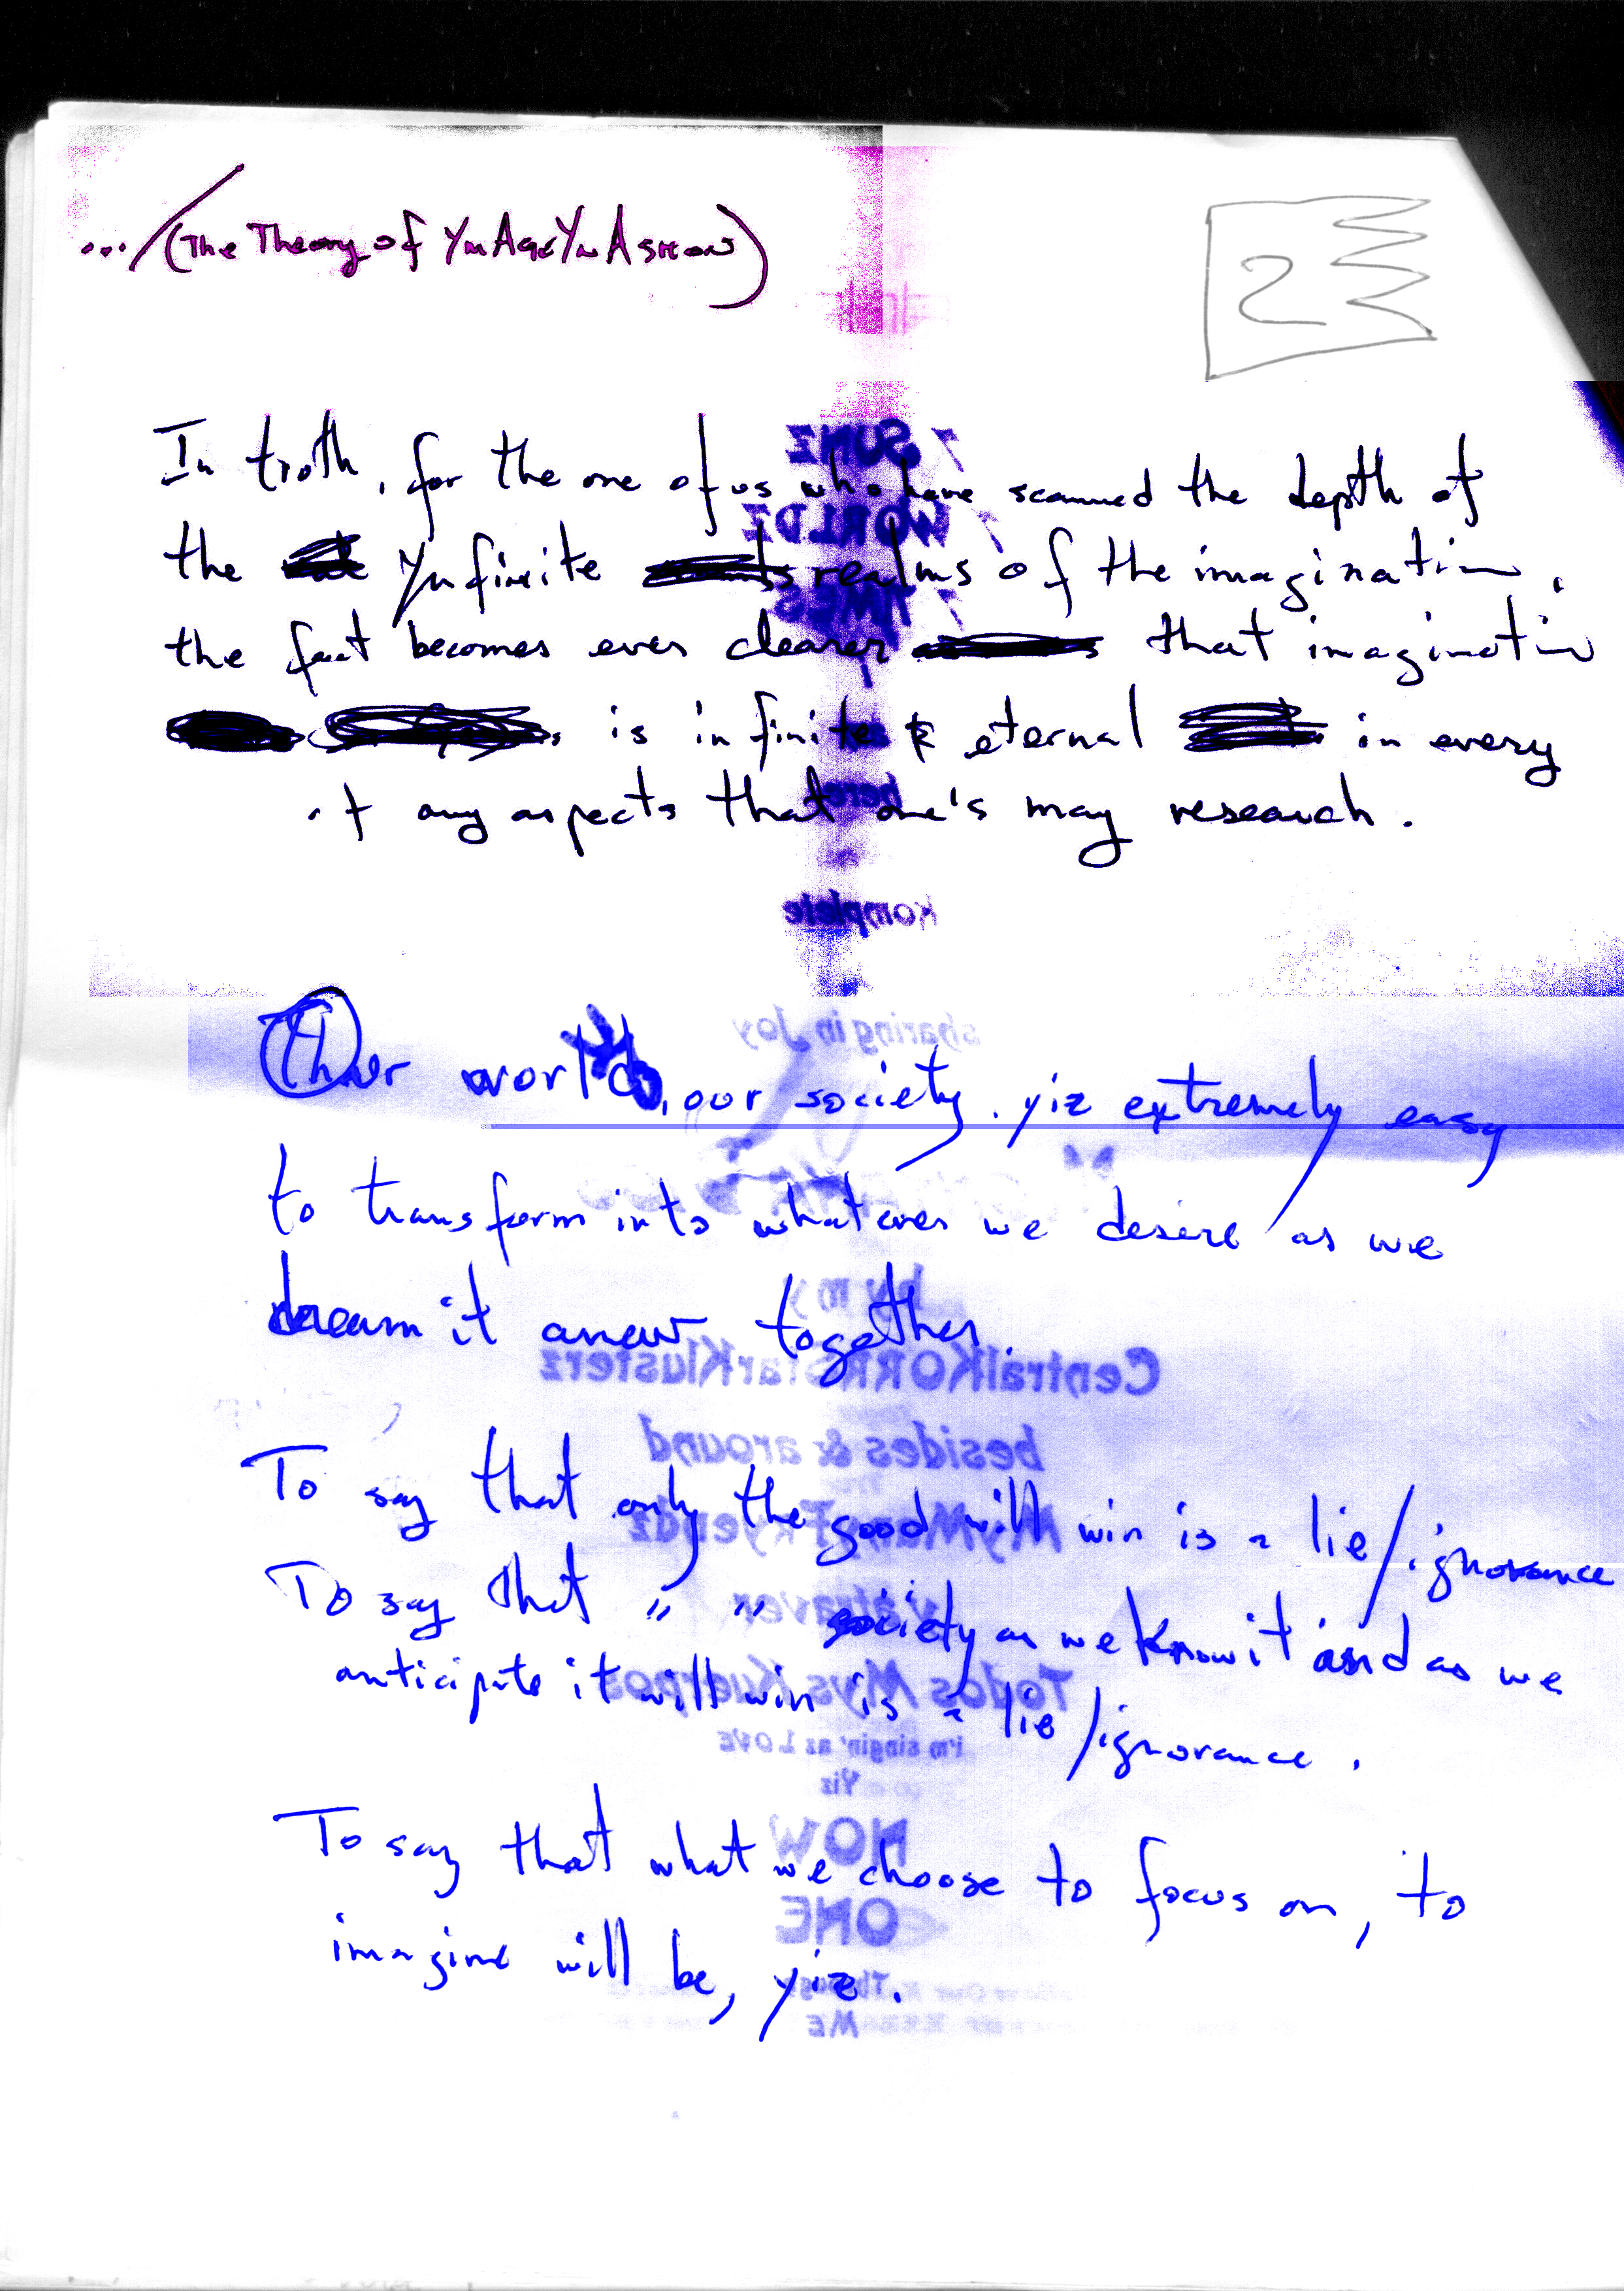 .../(The Theory of
2
In troth, for the one of us who have scanned the depth of
the Ynfinite realms of the imagination,
the fact becomes ever clearer that imagination
is infinite & eternal in every
any aspects that one's may research.
world, our society, yiz extremely easy
to transform into whatever we desire as we
dream it anew together.
To say that only the good will win is a lie/ignorance
To say that " " society as we know it and as we
anticipate it will win is a lie/ignorance.
To say that what we choose to focus on, to
imagine will be, yiz.
SUNZ
WORLDZ
TIMES
here
Komplete
sharing in Joy
by my
CentralKORRStarKlusterz
besides & around
MyManyFryendz
Todos Mys Kuerpos
i'm singin' az LOVE
Yiz
NOW
ONE
ME